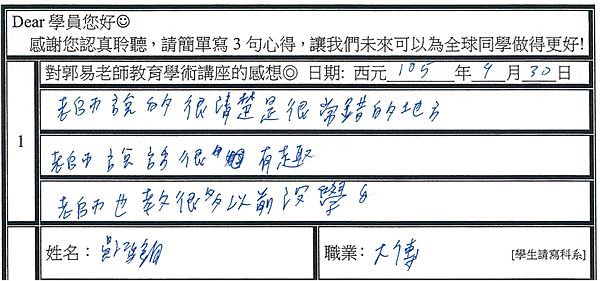 Dear 學員您好☺
感謝您認真聆聽，請簡單寫 3 句心得，讓我們未來可以為全球同學做得更好!
對郭易老師教育學術講座的感想◎ 日期: 西元 105 年 9 月 30 日
1
老師說的很清楚是很常錯的地方
老師說話很有趣
老師也教很多以前沒學
姓名：吳
職業：大傳 [學生請寫科系]